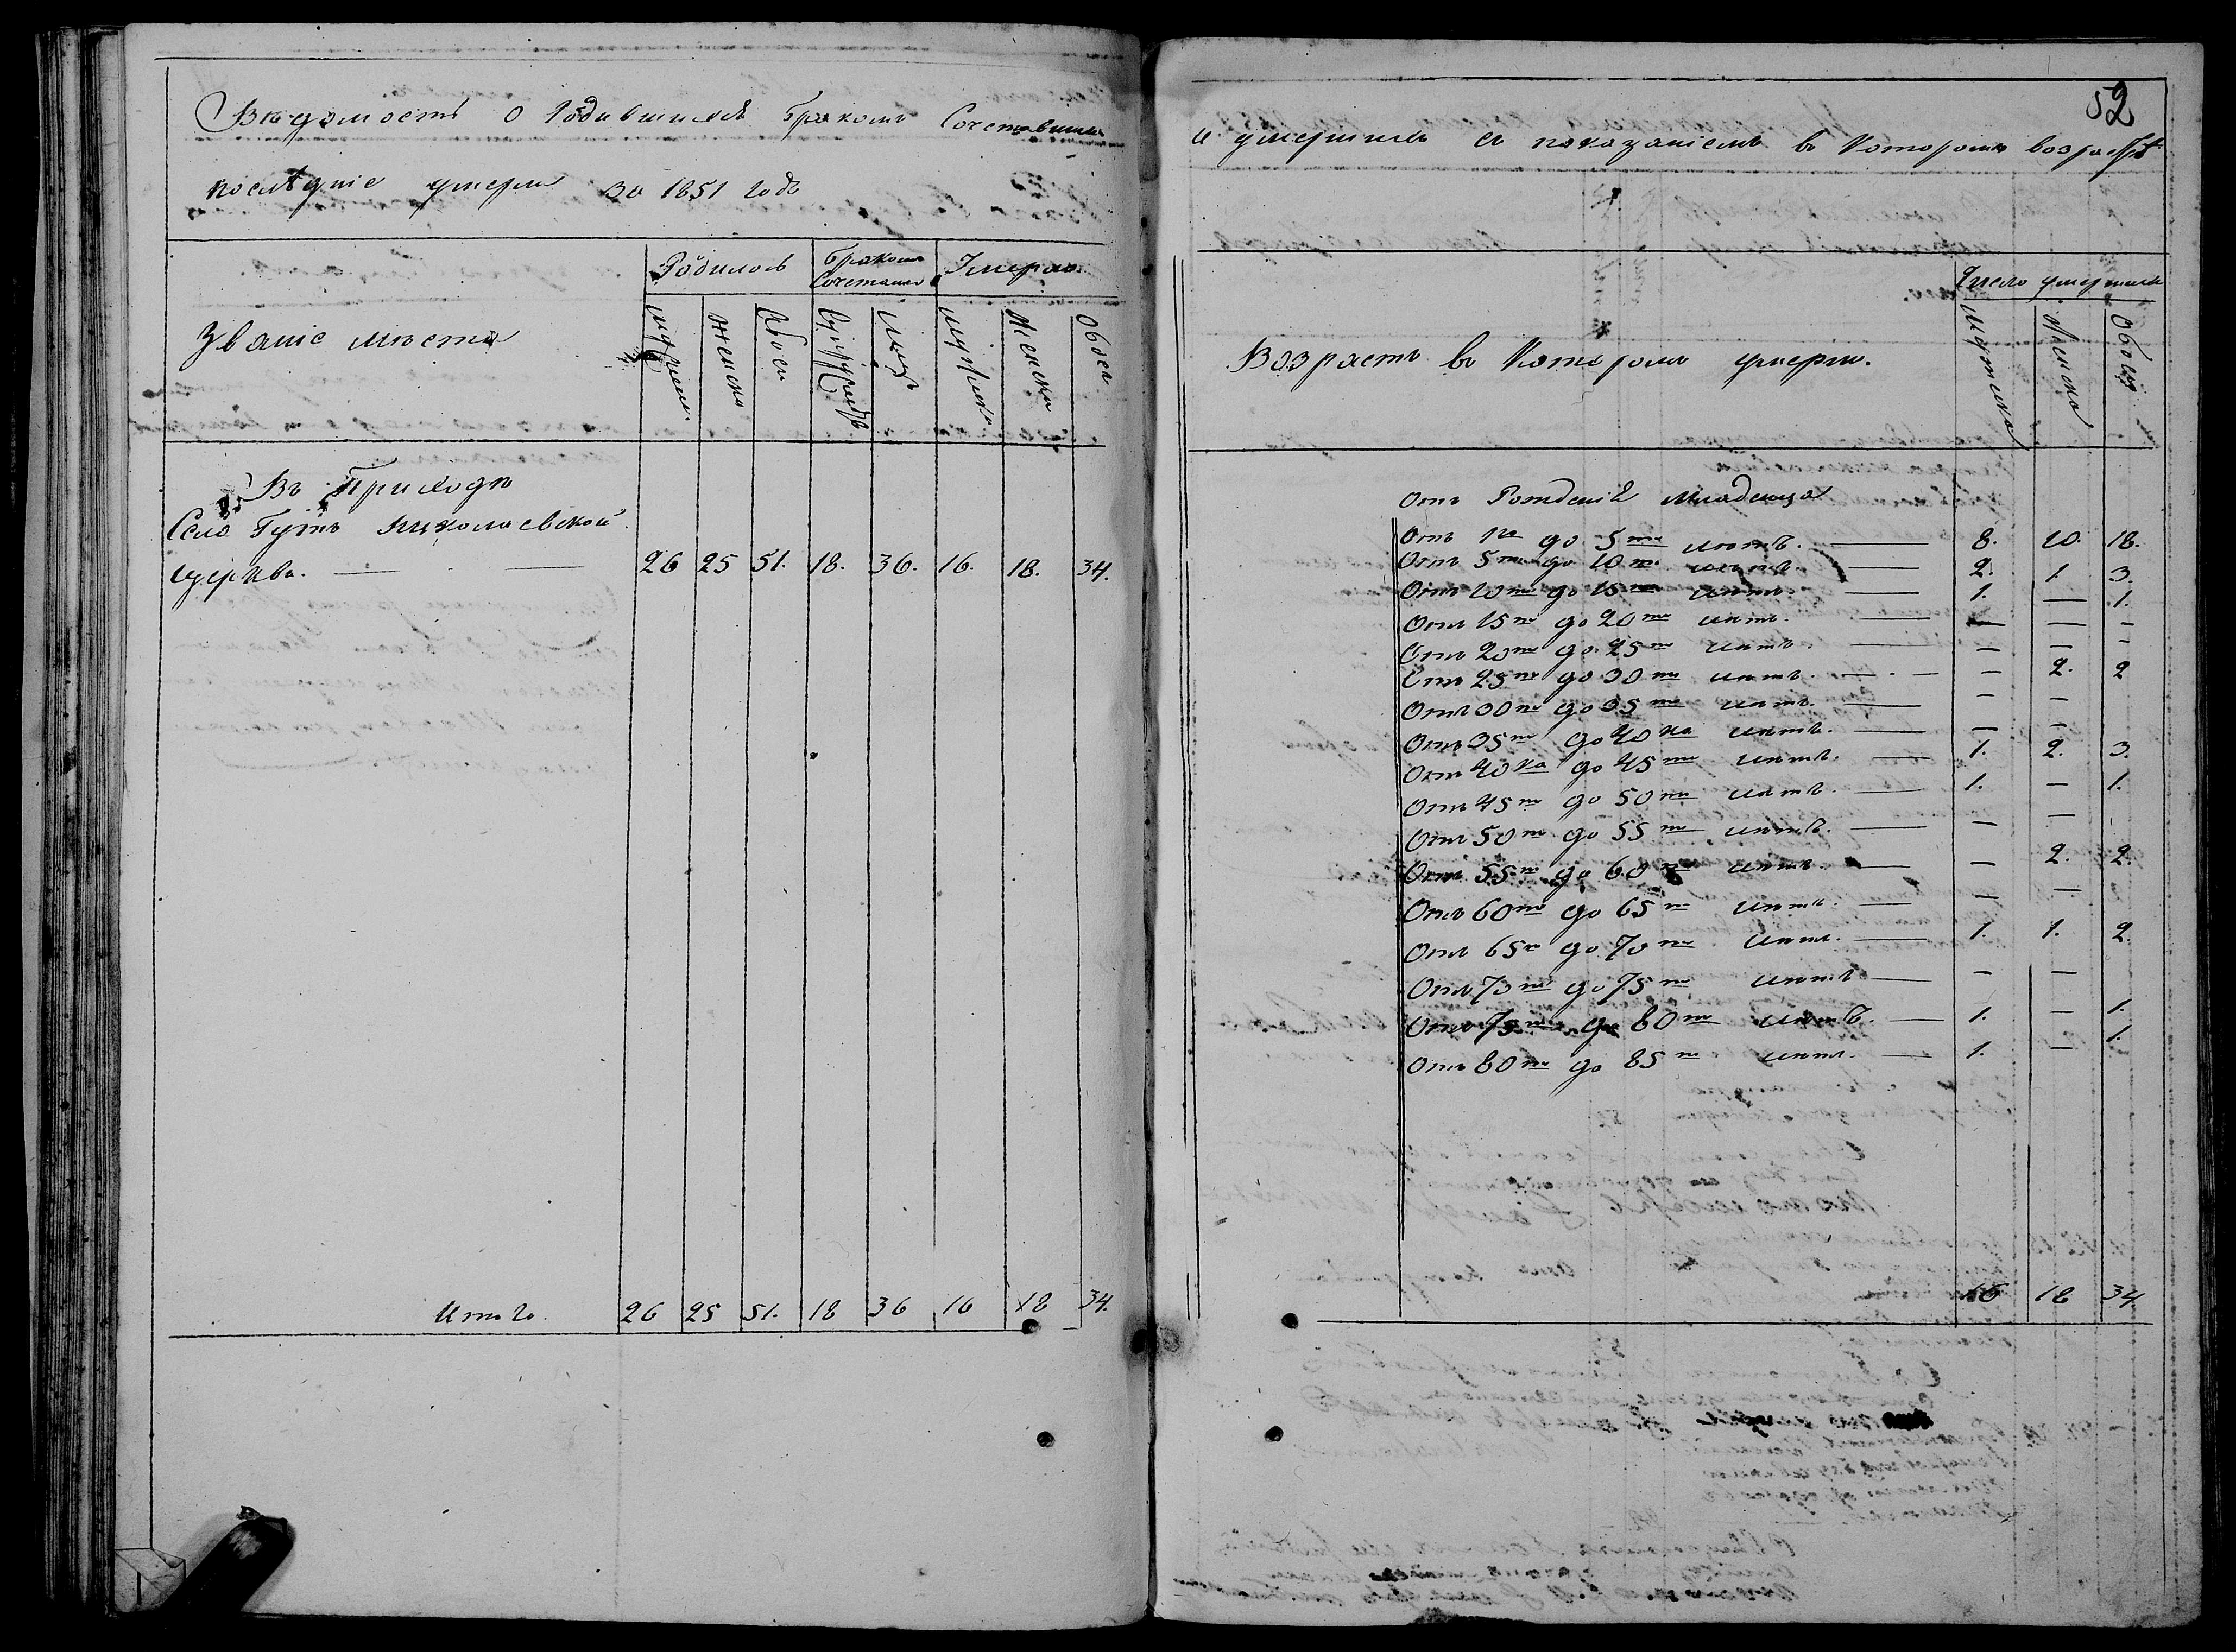 Вѣдомость о Родившихся Бракомъ Сочетавшихся
послѣдніе умерли за 1851 годъ
Родилось Бракомъ Сочетано Умерло
Званіе мѣста
мужеска женска обоего супружествъ лицъ мужеска женска обоего
Въ Приходѣ
Село Гутъ Николаевской
церкви. 26 25 51. 18. 36. 16. 18. 34.
Итого 26 25 51. 18 36 16 18 34.
52
и умершихъ съ показаніемъ въ которомъ возрастѣ
Число умершихъ
Возрастъ въ которомъ умерли.
мужеска женска обоего
Отъ Рожденія младенца
Отъ 1го до 5ти лѣтъ. — 8. 10. 18.
Отъ 5ти до 10ти лѣтъ. — 2. 1. 3.
Отъ 10ти до 15ти лѣтъ. — 1. — 1.
Отъ 15ти до 20ти лѣтъ. — — — —
Отъ 20ти до 25ти лѣтъ. — — — —
Отъ 25ти до 30ти лѣтъ. — — 2. 2
Отъ 30ти до 35ти лѣтъ. — — —
Отъ 35ти до 40ка лѣтъ. — — —
Отъ 40ка до 45ти лѣтъ. — 1. 2. 3.
Отъ 45ти до 50ти лѣтъ. — 1. — 1.
Отъ 50ти до 55ти лѣтъ. — — —
Отъ 55ти до 60ти лѣтъ. — — 2. 2.
Отъ 60ти до 65ти лѣтъ. — — —
Отъ 65ти до 70ти лѣтъ. — 1. 1. 2.
Отъ 70ти до 75ти лѣтъ — — —
Отъ 75ти до 80ти лѣтъ. — 1. — 1.
Отъ 80ти до 85ти лѣтъ. — 1. — 1.
16 18 34